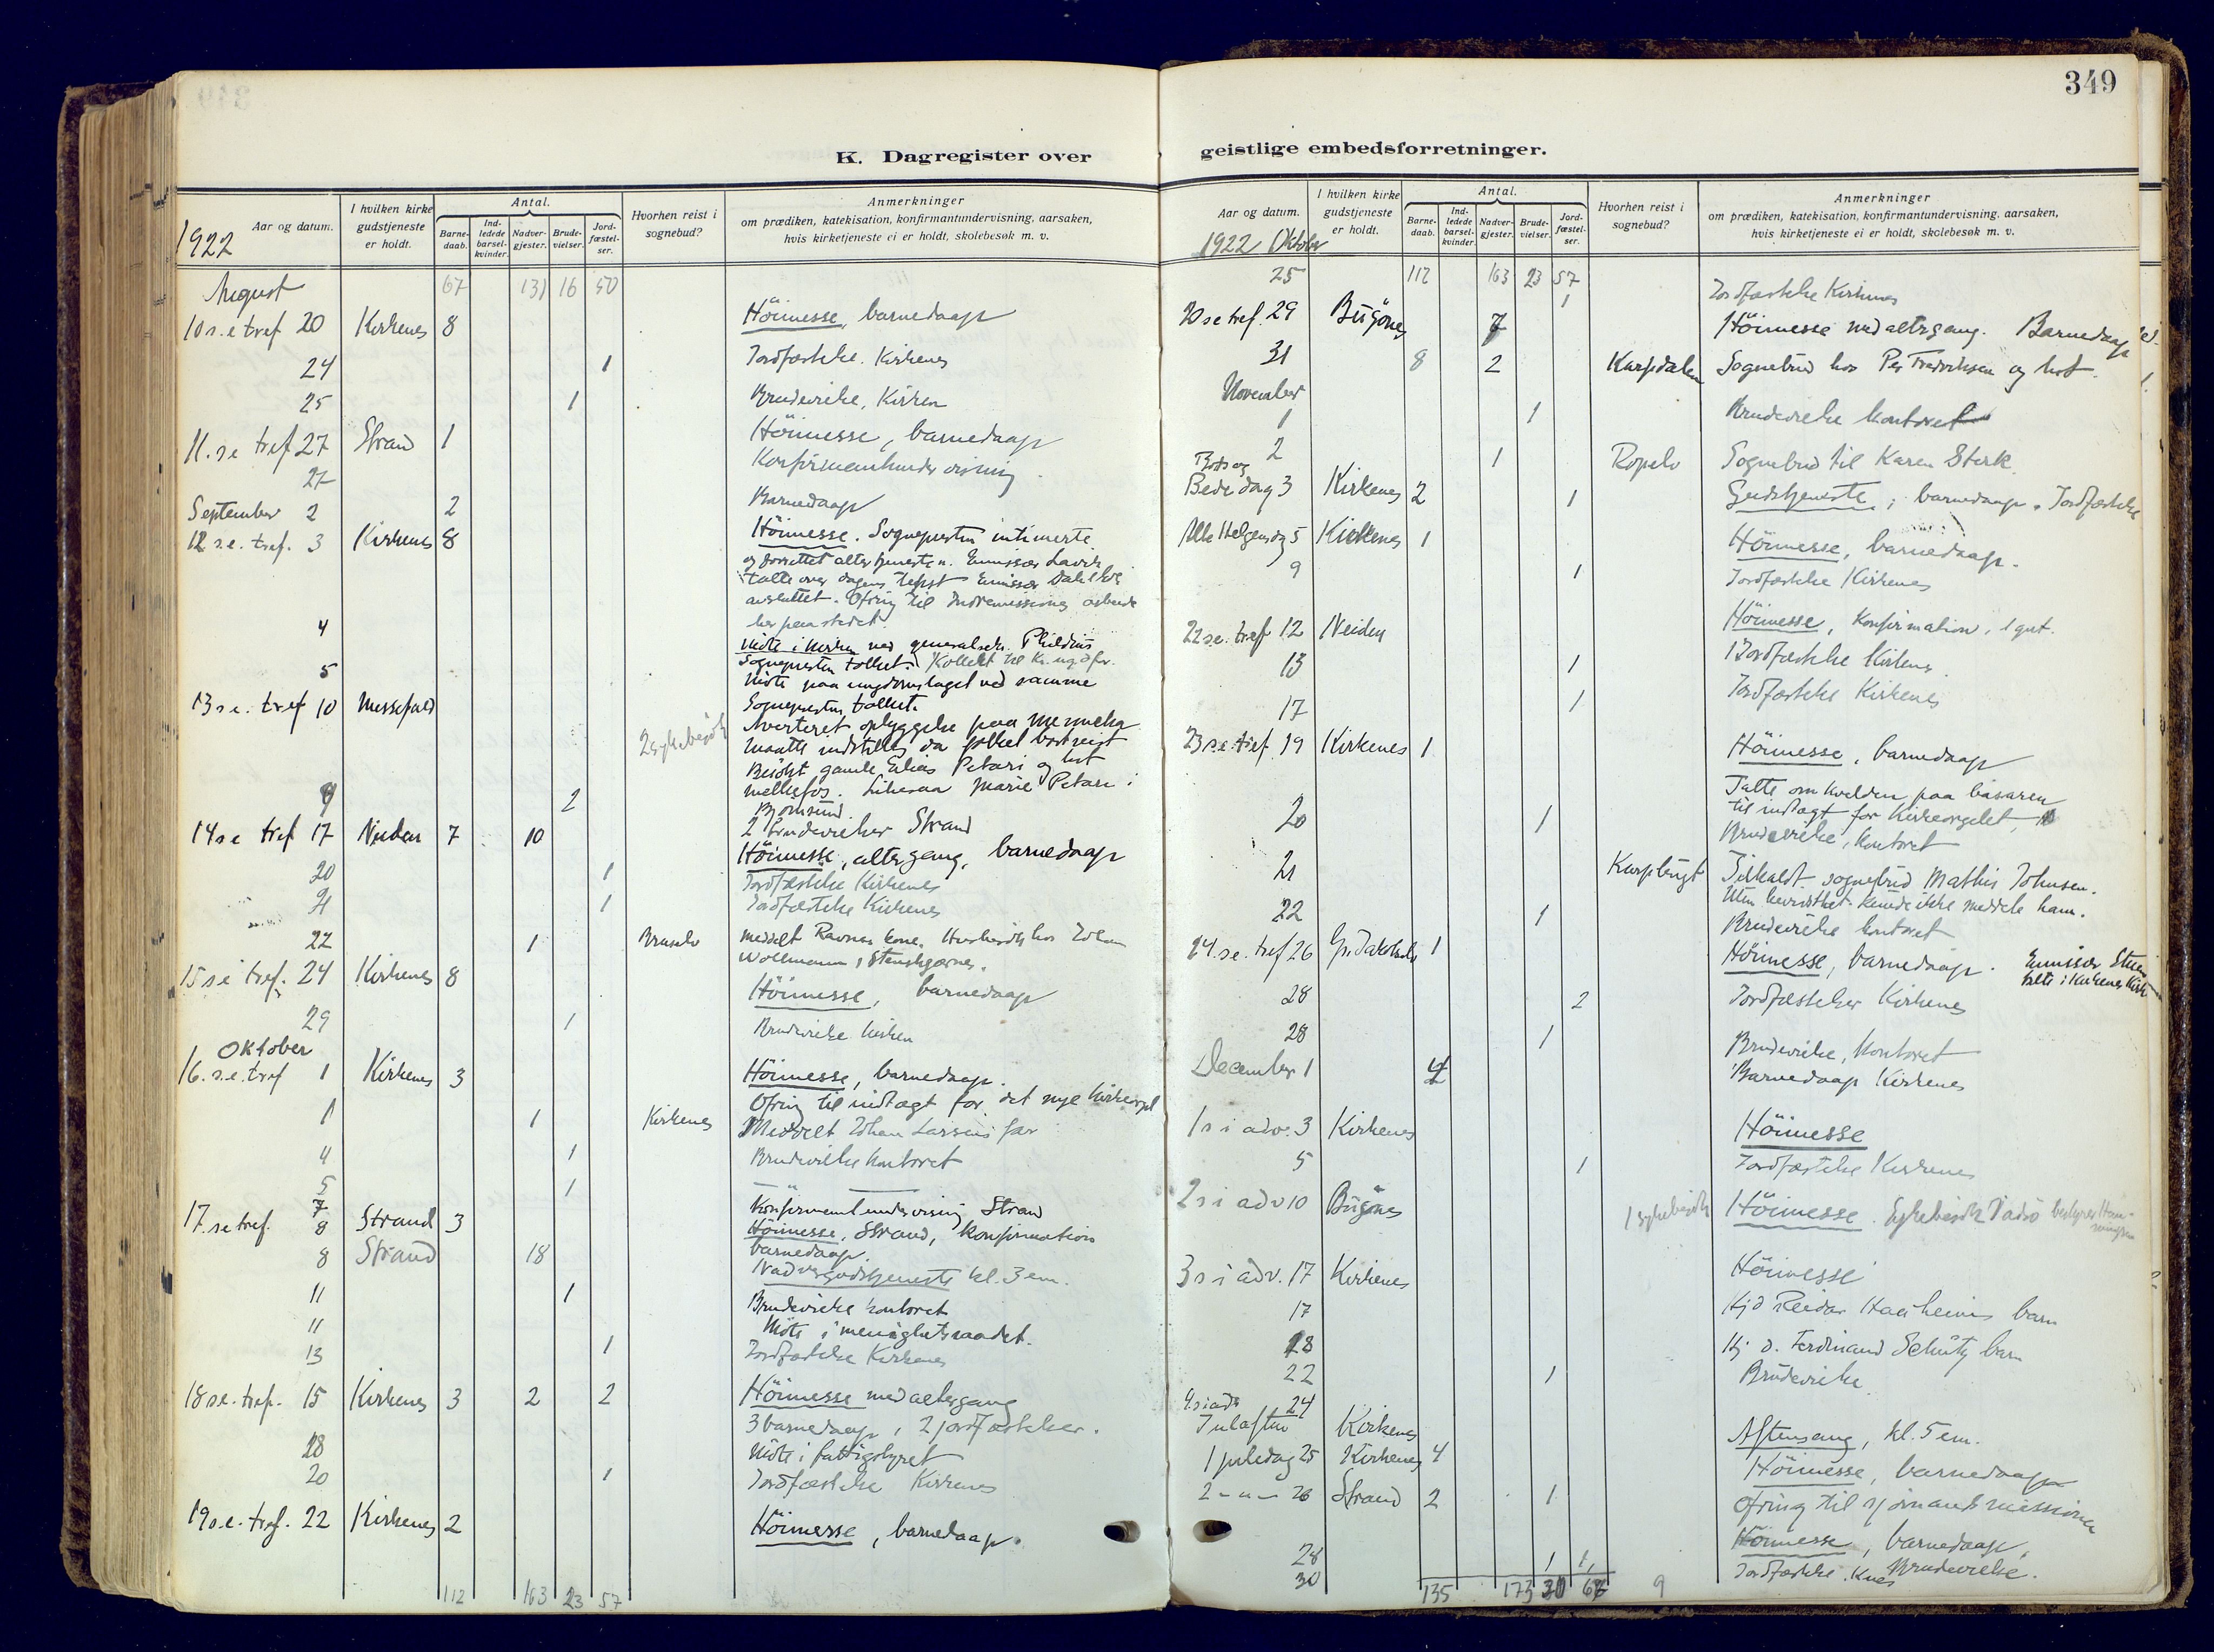 K. Dagregister over
1922
Aar og datum.
I hvilken kirke gudstjeneste er holdt.
Antal.
Barne-daab.
Ind-ledede barsel-kvinder.
Nadver-gjester.
Brude-vielser.
Jord-fæstel-ser.
Hvorhen reist i sognebud?
Anmerkninger
om prædiken, katekisation, konfirmantundervisning, aarsaken,
hvis kirketjeneste ei er holdt, skolebesøk m. v.
August 67 131 16 50
10 s.e tref 20 Kirkenes 8 Höimesse, barnedaap
24 1 Jordfæstelse. Kirkenes
25 1 Brudevielse, Kirken
11. s e tref 27 Strand 1 Höimesse, barnedaap
27 Konfirmantundervisning.
September 2 2 Barnedaap
12 s.e. tref. 3 Kirkenes 8 Höimesse. Sognepresten intimerte
og forrettet altertjenesten. Emissær Lavik
talte over dagens tekst Emissær
avsluttet. Ofring til Indremissions arbeide
her paa stedet
4 Möte i kirken ved generalsekr.
Sognepresten tolket. Kollekt til Kr. ungd.for.
5 Möte paa ungdomslaget ved samme
Sognepresten tolket.
13 s.e. tref 10 Averteret opbyggelse paa
maatte indstilles da folket bortreist
2 sykebesök Besökt gamle Elias Petari og
Likesaa Marie Petari i
9 2 2 brudevielser Strand
14 s e tref 17 Neiden 7 10 Höimesse, altergang, barnedaap
20 1 Jordfæstelse Kirkenes
21 1 Jordfæstelse Kirkenes
22 1 meddelt Ravnas kone. Husbesök hos Johan
Wollmann,
15 s e tref. 24 Kirkenes 8 Höimesse, barnedaap
29 1 Brudevielse kirken
Oktober
16. s.e. tref 1 Kirkenes 3 Höimesse, barnedaap.
Ofring til indtægt for det nye kirkeorgel
1 1 Kirkenes Meddelt Johan Larsens far
4 1 Brudevielse kontoret
5 1
7 Konfirmantundervisning Strand
17. s e tref. 8 Strand 3 Höimesse, Strand, konfirmation
barnedaap.
8 Strand 18 Nadvergudstjeneste kl. 3 em.
11 1 Brudevielse kontoret
11 Möte i menighetsraadet.
13 1 Jordfæstelse Kirkenes
18 s e. tref. 15 Kirkenes 3 2 2 Höimesse med altergang
3 barnedaap, 2 jordfæstelser.
18 Möte i fattigstyret
20 1 Jordfæstelse Kirkenes
19 s.e. tref. 22 Kirkenes 2 Höimesse, barnedaap.
112 163 23 57
349
geistlige embedsforretninger.
Aar og datum.
1922 Oktober
I hvilken kirke gudstjeneste er holdt.
Antal.
Barne-daab.
Ind-ledede barsel-kvinder.
Nadver-gjester.
Brude-vielser.
Jord-fæstel-ser.
Hvorhen reist i sognebud?
Anmerkninger
om prædiken, katekisation, konfirmantundervisning, aarsaken,
hvis kirketjeneste ei er holdt, skolebesøk m. v.
112 163 23 57
25 1 Jordfæstelse Kirkenes
20 s e tref. 29 Bugönes 7 Höimesse med altergang. Barnedaap
31 8 2 Karpdalen Sognebud hos Per Fredriksen og
November
1 1 Brudevielse kontoret
2 1 Ropelv Sognebud til Karen Sterk.
Bots og
Bededag 3 Kirkenes 2 1 Gudstjeneste, barnedaap. Jordfæstelse
Alle Helgensdag 5 Kirkenes 1 Höimesse, barnedaap.
9 1 Jordfæstelse Kirkenes
22 s e. tref 12 Neiden Höimesse, konfirmation, 1 gut.
13 1 Jordfæstelse Kirkenes
17 1 Jordfæstelse Kirkenes
23 s.e. tref. 19 Kirkenes 1 Höimesse, barnedaap
Talte om kvelden paa basaren
til indtægt for kirkeorgelet,
20 1 Brudevielse, kontoret
21 Karpbugt Tilkaldt sognebud Mathis Johnsen.
Uten bevissthet kunde ikke meddele ham.
22 1 Brudevielse kontoret
24. s e. tref 26 Gr. Jakobselv 1 Höimesse, barnedaap. Emissær
talte i Kirkenes Kirke
28 2 Jordfæstelser Kirkenes
28 1 Brudevielse, kontoret
December 1 Barnedaap Kirkenes
1 s i adv. 3 Kirkenes Höimesse
5 1 Jordfæstelse Kirkenes
2 s i adv 10 Bugönes 1 sykebesök Höimesse. Sykebesök
3 s i adv. 17 Kirkenes Höimesse
17 Hj d Reidar Haarheims barn
18 Hj. d. Ferdinand Schütz barn
22 1 Brudevielse.
4 s i adv 24
Julaften Kirkenes Aftensang, kl. 5 em.
1 juledag 25 Kirkenes 4 Höimesse, barnedaap
Ofring til sjömandsmissionen
2 - " - 26 Strand 2 1 Höimesse, barnedaap, Brudevielse.
28 1 1
30 Jordfæstelse. Knes
135 173 9